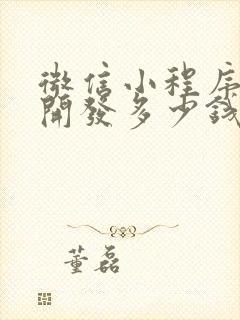 微信小程序
開發多少錢
董磊